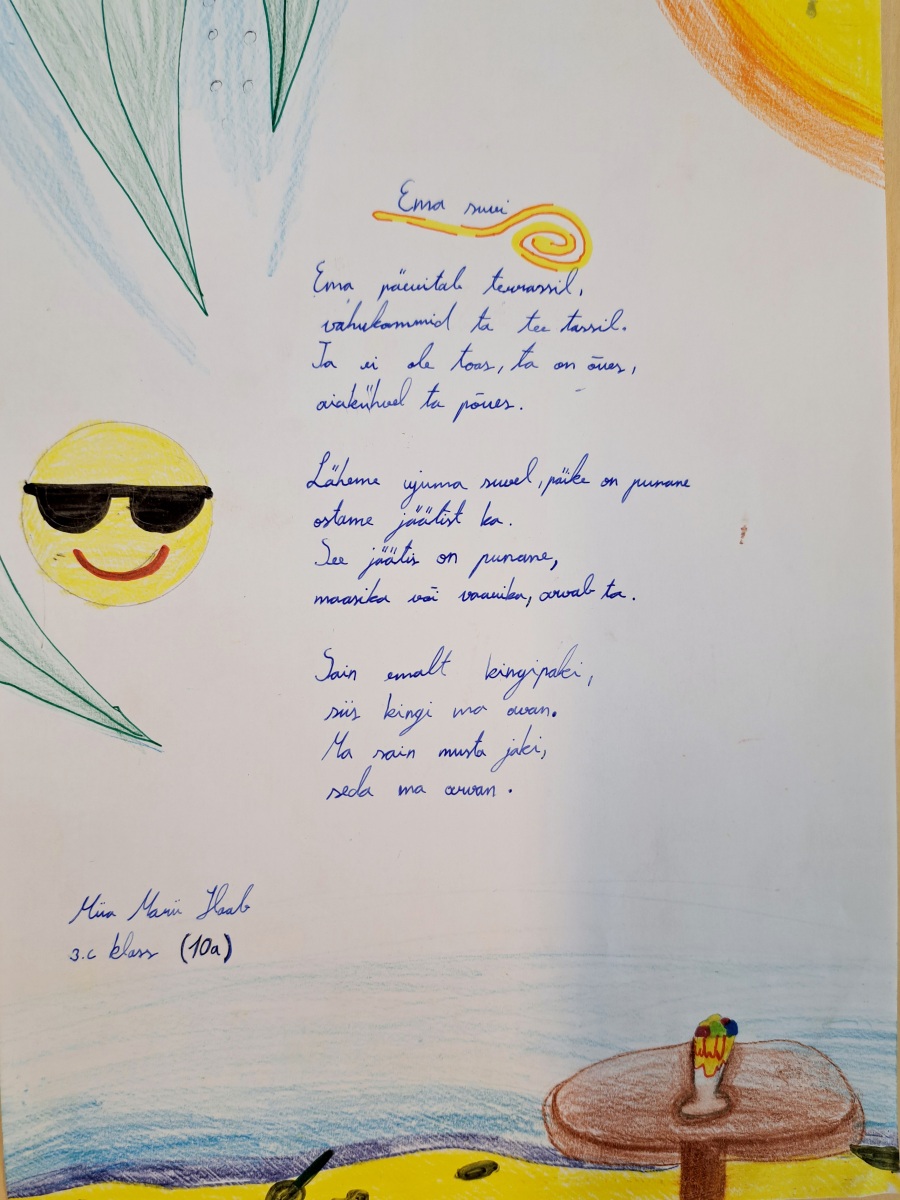 Ema suvi
Ema päevitab terrassil,
vahukommid ta tee tassil.
Ta ei ole toas, ta on õues,
aiakühvel ta põues.
Läheme ujuma suvel, päike on punane
ostame jäätist ka.
See jäätis on punane,
maasika või vaarika, arvab ta.
Sain emalt kingipaki,
siis kingi ma avan.
Ma sain musta jaki,
seda ma arvan.
Miia Marii Haab
3.c klass (10a)